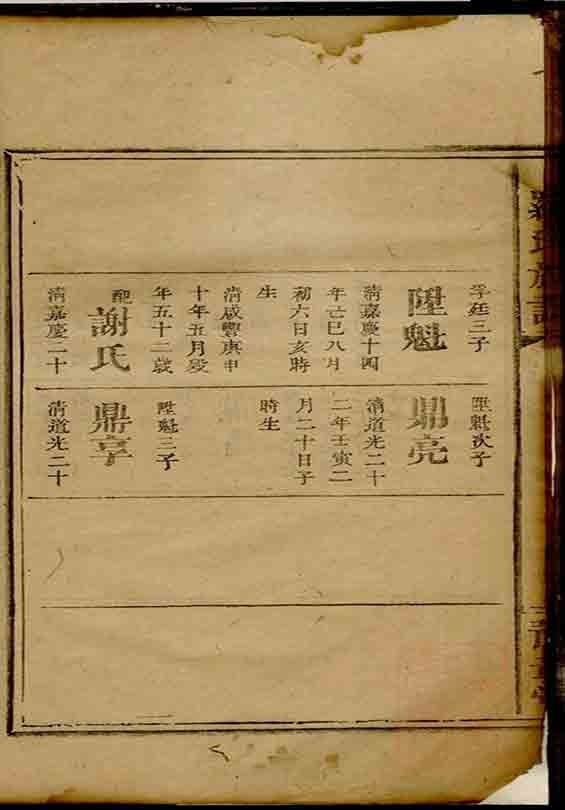 廷三子
陞魁
清嘉慶十四
年己巳八月
初六日亥時
生
清咸豐庚申
十年五月歿
年五十二歲
配謝氏
清嘉慶二十
陞魁次子
鼎亮
清道光二十
二年壬寅二
月二十日子
時生
陞魁三子
鼎享
清道光二十
氏族譜